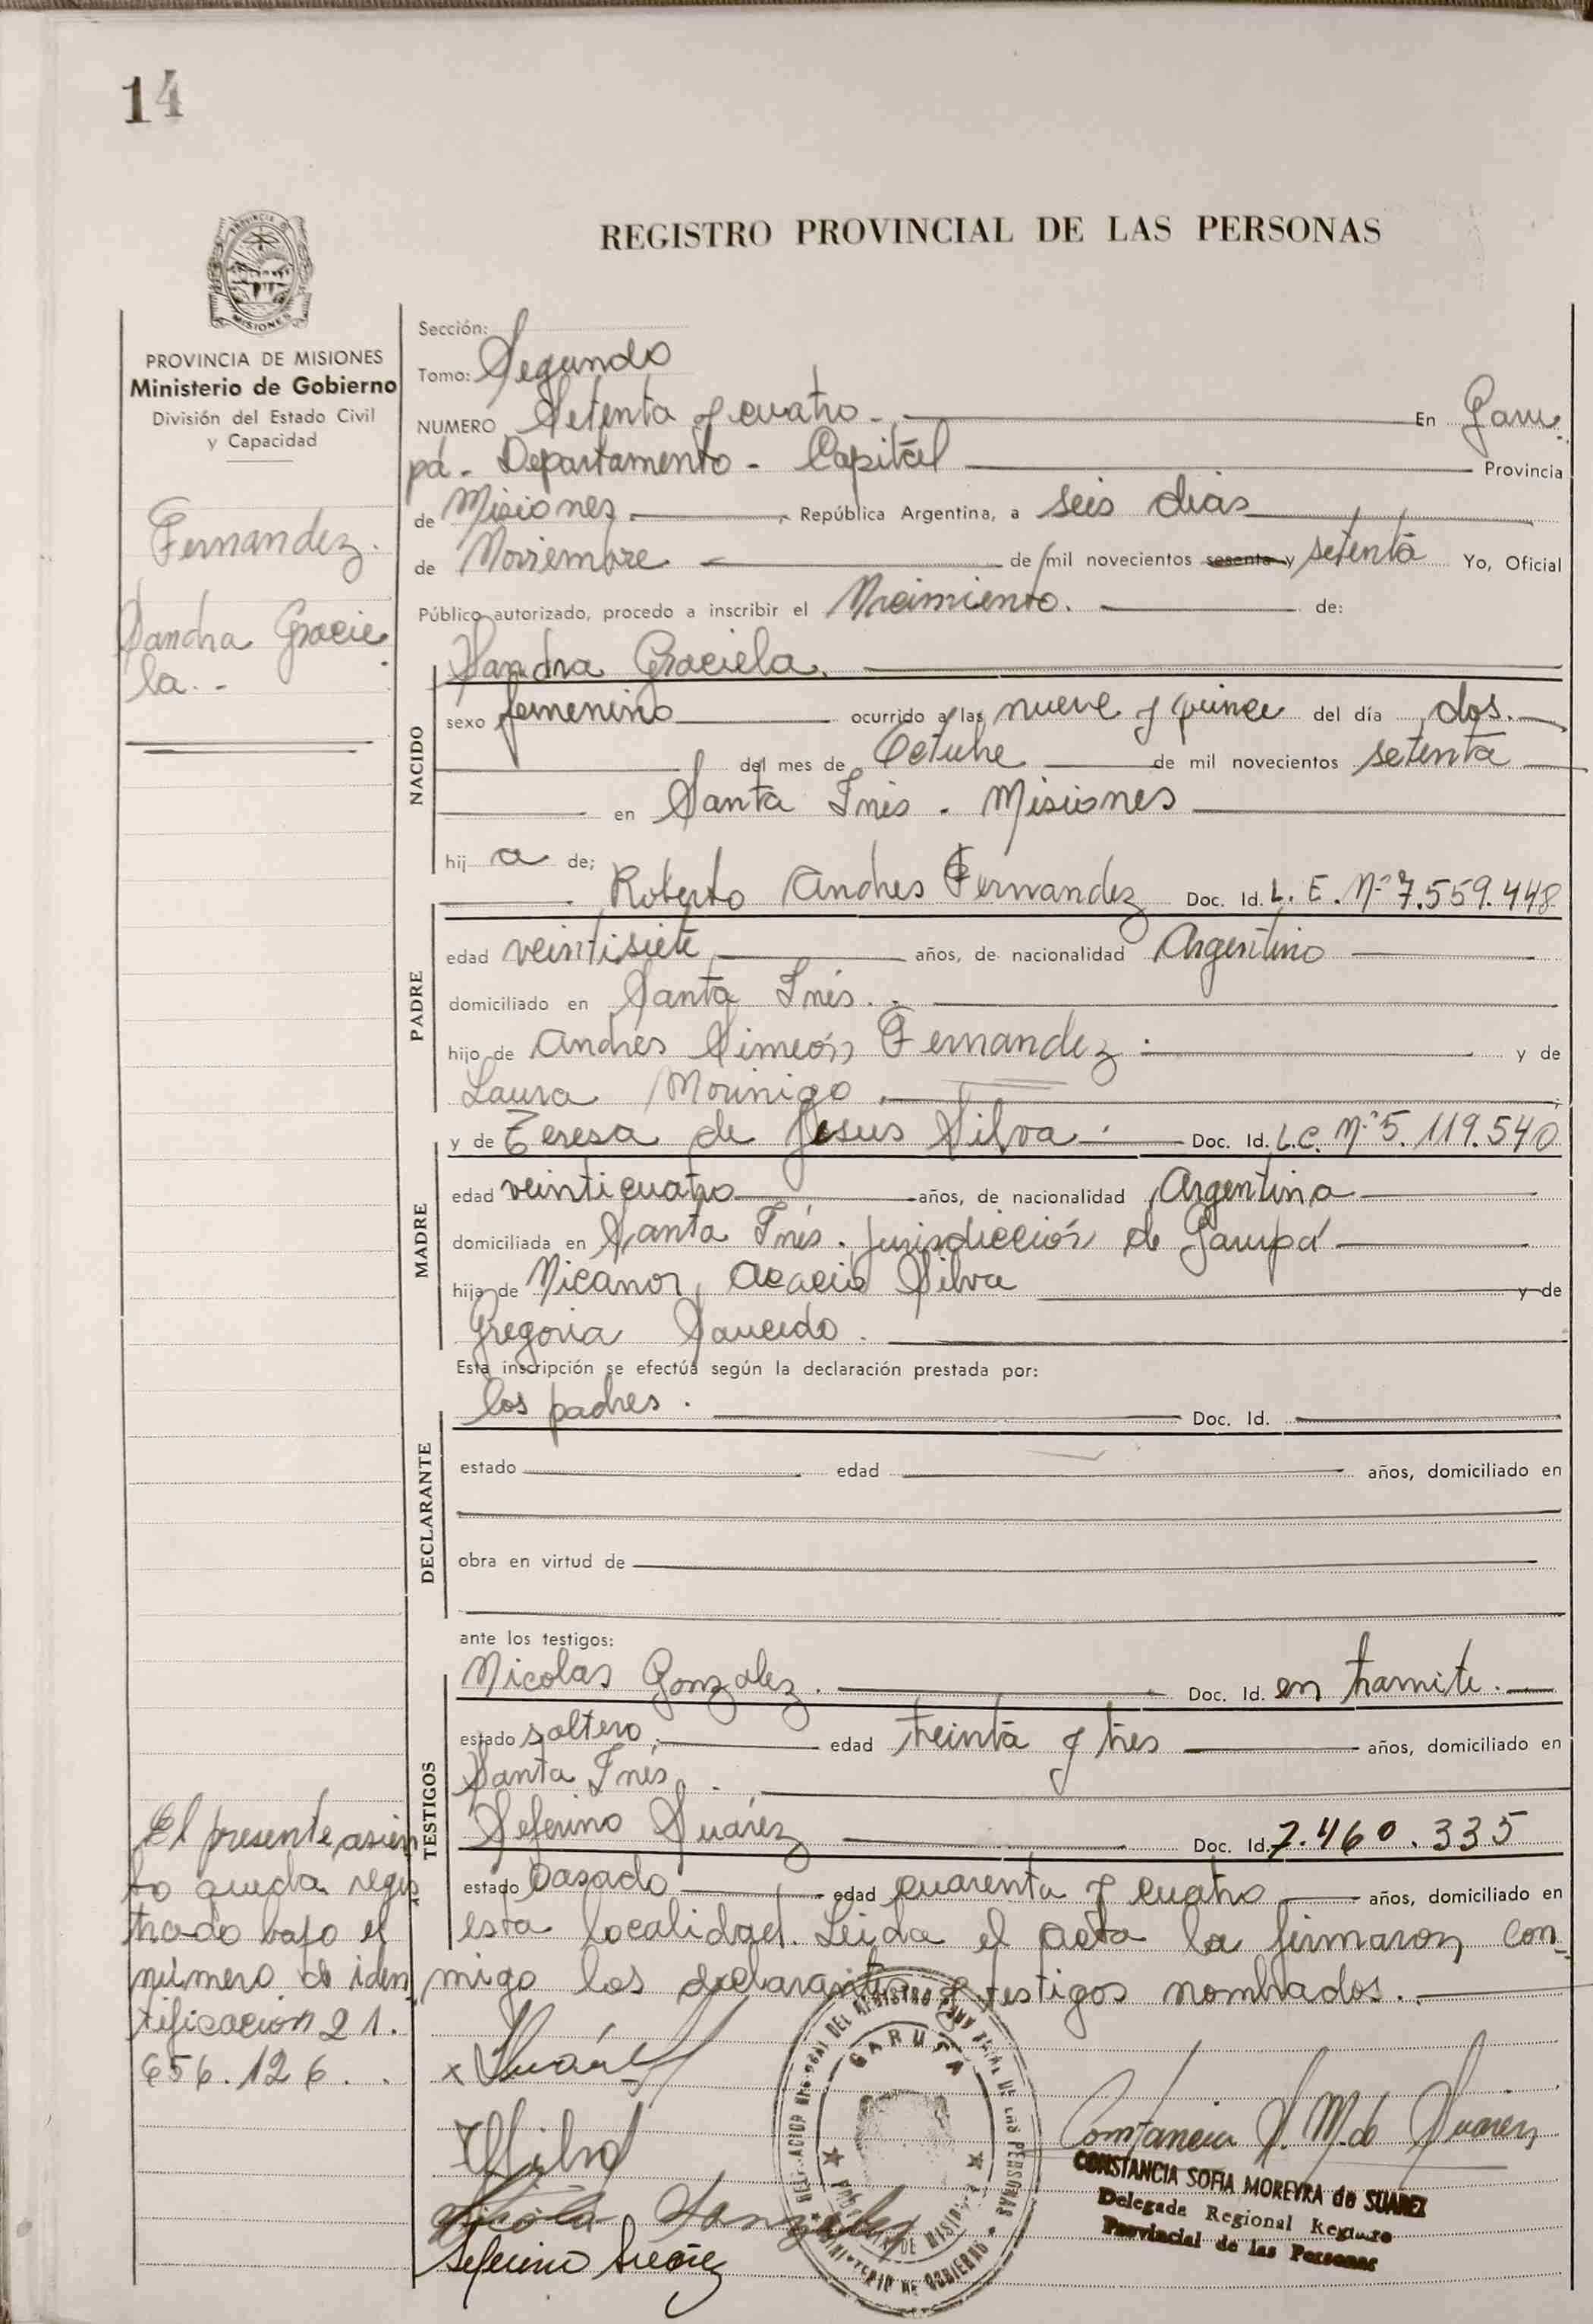 14
REGISTRO PROVINCIAL DE LAS PERSONAS
PROVINCIA
MISIONES
PROVINCIA DE MISIONES
Ministerio de Gobierno
División del Estado Civil
y Capacidad
Fernandez.
Sandra Gracie
la. -
Sección:
Tomo: Segundo
NUMERO Setenta y cuatro - En Garu
pá - Departamento - Capital Provincia
de Misiones República Argentina, a seis dias
de Noviembre de mil novecientos sesenta y setenta Yo, Oficial
Público autorizado, procedo a inscribir el Nacimiento. de:
NACIDO
Sandra Graciela.
sexo femenino ocurrido a las nueve y quince del día dos.
del mes de Octubre de mil novecientos setenta
en Santa Inés - Misiones
hij a de;
PADRE
Roberto Andres Fernandez Doc. Id. L. E. Nº 7.559.448
edad veintisiete años, de nacionalidad Argentino
domiciliado en Santa Inés. -
hijo de Andrés Simeón Fernandez. y de
Laura Morinigo.
MADRE
y de Teresa de Jesus Silva. Doc. Id. L.C. Nº 5.119.540
edad veinticuatro años, de nacionalidad Argentina
domiciliada en Santa Inés. Jurisdicción de Garupá
hija de Nicanor Acacio Silva y de
Gregoria Saucedo.
Esta inscripción se efectúa según la declaración prestada por:
DECLARANTE
los padres. Doc. Id.
estado edad años, domiciliado en
obra en virtud de
ante los testigos:
TESTIGOS
Nicolas Gonzalez. Doc. Id. en tramite.
estado soltero, edad treinta y tres años, domiciliado en
Santa Inés.
Seferino Suárez Doc. Id. 7.460.335
estado casado edad cuarenta y cuatro años, domiciliado en
esta localidad. Leida el acta la firmaron con-
migo los declarantes y testigos nombrados.
El presente asien
to queda regis
trado bajo el
número de iden
tificacion 21.
656.126.
x Suárez
Silva
Nicola Gonzalez
Seferino Suarez
GARUPÁ
MINISTERIO DE GOBIERNO
Constancia S. M. de Suarez
CONSTANCIA SOFIA MOREYRA de SUAREZ
Delegada Regional Registro
Provincial de las Personas